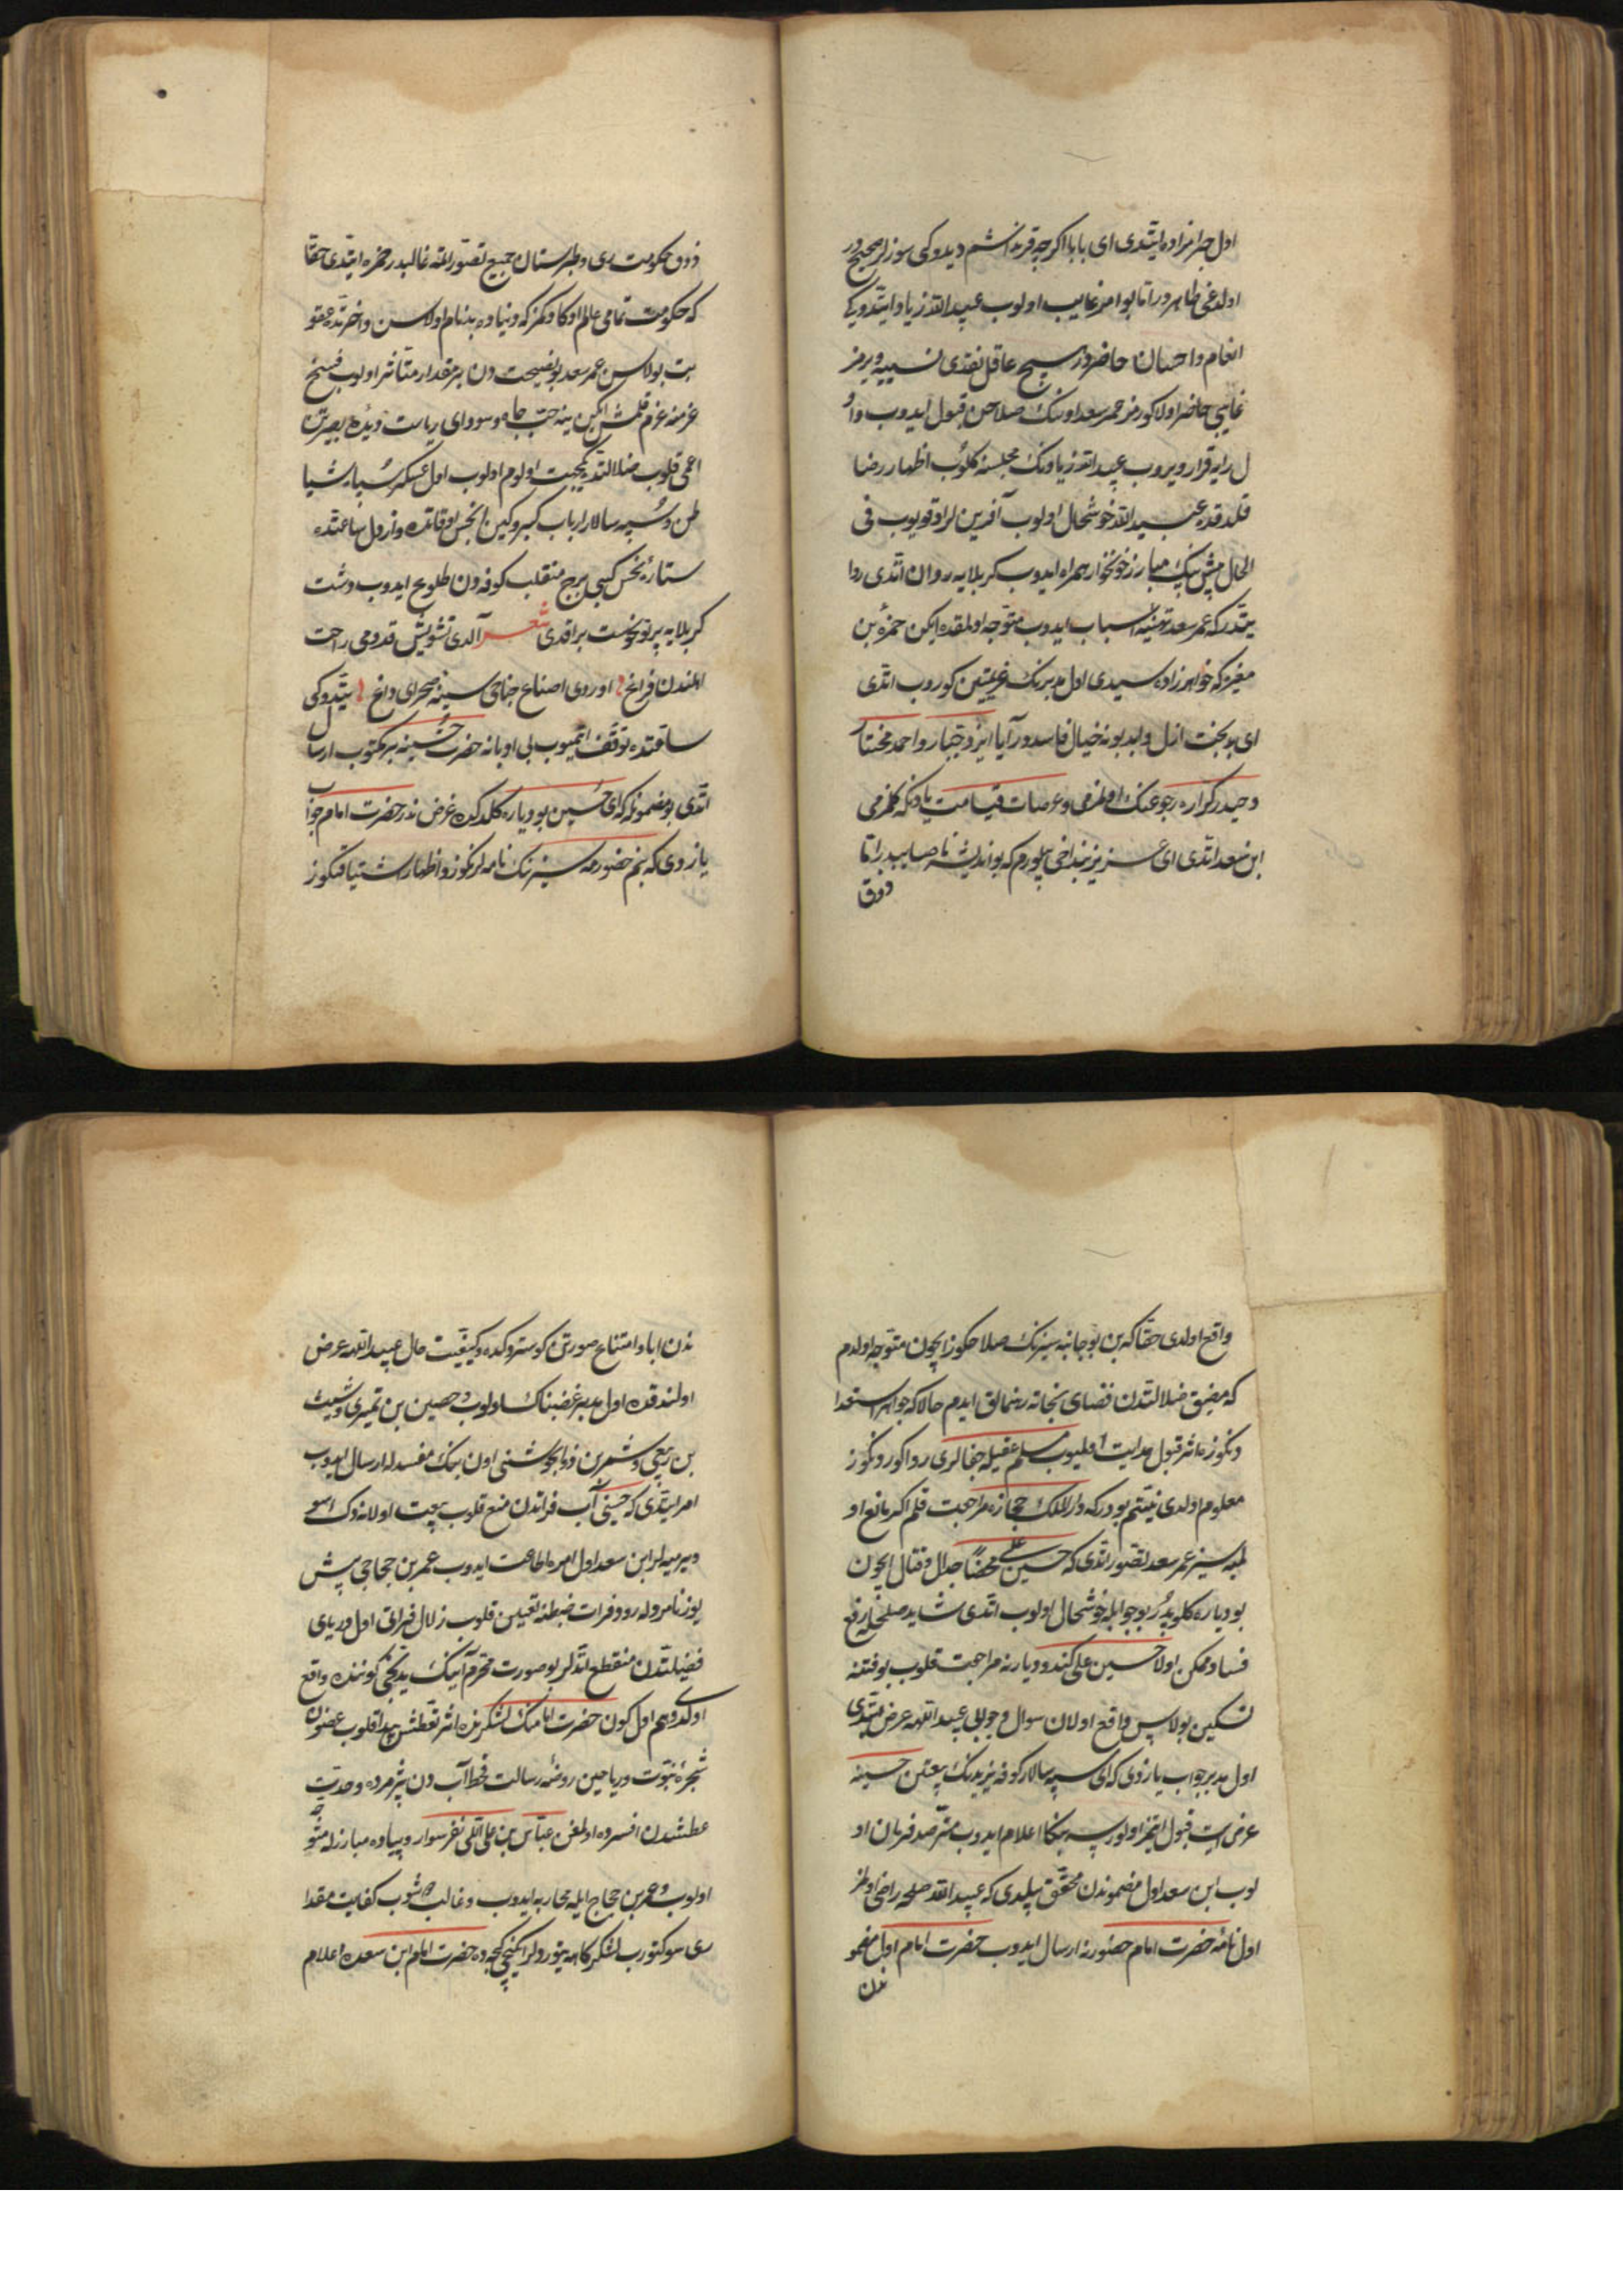 اول حرامزاده ایتدی ای بابا اکرچه قرنداشم دیدوکی سوزلر صحیح در
اولدغی ظاهر در اما بو امر غایب اولوب عبید الله زیاد ایتدوکی
انعام و احسان حاضر در هیچ عاقل نقدی نسیه ویرمز
غایبی حاضر اولا کورمز عمر سعد اونک صلاحن قبول ایدوب و او
ل رایه قرار ویروب عبید الله زیادنک مجلسنه کلوب اظهار رضا
قلدقده عبید الله خوشحال اولوب آفرین لر اوقویوب فی
الحال بش بیک مبارز خونخوار همراه ایدوب کربلایه روان اتدی روا
یتدر که عمر سعد تهیئه اسباب ایدوب متوجه اولمقده ایکن حمزه بن
مغیره که خواهرزاده سیدی اول مدبرنک عزیمتین کوروب اتدی
ای بدبخت ازل و ابد بو نه خیال فاسددر آیا ایزد جبار و احمد مختار
و حیدر کراره رجوعنک اولمزمی و عرصات قیامت یادنکه کلمزمی
ابن سعد اتدی ای عزیز بن داخی بیلورم که بو اندیشه ناصایبدر اما
ذوق
ذوق حکومت ری و طبرستان جمیع تصور اتمه غالبدر حمزه ایتدی حقا
که حکومت تمامی عالم اوکا دکمز که دنیاده بدنام اولاسن و اخرتده عقو
بت بولاسن عمر سعد بو نصیحت دن بر مقدار متأثر اولوب فسخ
عزمنه عزم قلمش ایکن ینه حب جاه و سودای ریاست دیده بصیرتن
اعمی قلوب ضلالتده کمجهت اولوم اولوب اول عسکر سپاه شیا
طن و سپه سالار ارباب کبر و کین انحس اوقاتده و ارذل ساعتده
ستاره نحس کبی برج منقلب کوفه دن طلوع ایدوب دشت
کربلایه پرتو نحوست براقدی شعر آلدی تشویش قدومی راحت
اهلندن فراغ اوردی اصناع جناحی سینه صحرای داغ یتدوکی
ساعتده توقف اتمیوب بی اوبانه حضرت حسینه بر مکتوب ارسال
اتدی بو مضمونله که ای حسین بو دیاره کلمدکده غرض ندر حضرت امام جواب
یازدی که بنم حضورمه سیزنک نامه لرنکوز و اظهار اشتیاقنکوز
واقع اولدی حقا که بن بو جانبه سیزنک صلاحکوز ایچون متوجه اولدم
که مضیق ضلالتدن فضای نجاته رهنمالق ایدم حالا که جواهر استعدا
دنکوزه اثر قبول هدایت اولمیوب مسلم عقیله جفالری روا کوردنکوز
معلوم اولدی نیتم بودر که دار الملک حجازه مراجعت قلم اکر مانع او
لمیه سیز عمر سعد تصور اتدی که حسین علی محضا جدال و قتال ایچون
بو دیاره کلوبدر بو جوابله خوشحال اولوب اتدی شاید صلحله رفع
فساد ممکن اولا حسین علی کندو دیارنه مراجعت قلوب بو فتنه
تسکین بولا پس واقع اولان سوال و جوابی عبید اللهه عرض ایتدی
اول مدبر جواب یازدی که ای سپه سالار کوفه یزیدنک بیعتن حسینه
عرض ایت قبول ایتمز اولورسه بنکا اعلام ایدوب مترصد فرمان او
لوب ابن سعد اول مضموندن محقق بیلدی که عبید الله صلحه راضی اولمز
اول نامه حضرت امام حضورنه ارسال ایدوب حضرت امام اول مضمو
ندن
ندن ابا و امتناع صورتن کوستردکده و کیفیت حال عبید اللهه عرض
اولندقده اول مدبر غضبناک اولوب و حصین بن نمیری و شیث
بن ربعی و شمر بن ذو الجوشنی اون بیک مفسدله ارسال ایدوب
امر ایتدی که حسینی آب فراتدن منع قلوب بیعت اولمادوک اسو
ویرمیه لر ابن سعد اول امره اطاعت ایدوب عمر بن حجاجی بش
یوز نامردله رود فرات ضبطنه تعیین قلوب زلال فراتی اول دریای
فضیلتدن منقطع اتدلر بو صورت محرم آیینک یدنجی کوننده واقع
اولدی و هم اول کون حضرت امامنک لشکرنده اثر تعطش پیدا قلوب غضون
شجره نبوت و ریاحین روضه رسالت قحط آب دن پژمرده و حدیت
عطشدن افسرده اولمغن عباس بن علی اللی نفر سوار و پیاده مبارزله متوجه
اولوب و عمر بن حجاج ایله محاربه ایدوب و غالب اولوب کفایت مقدا
ری صو کتورب لشکرکاهه یتوردلر ایکنجی کجه ده حضرت امام ابن سعده اعلام